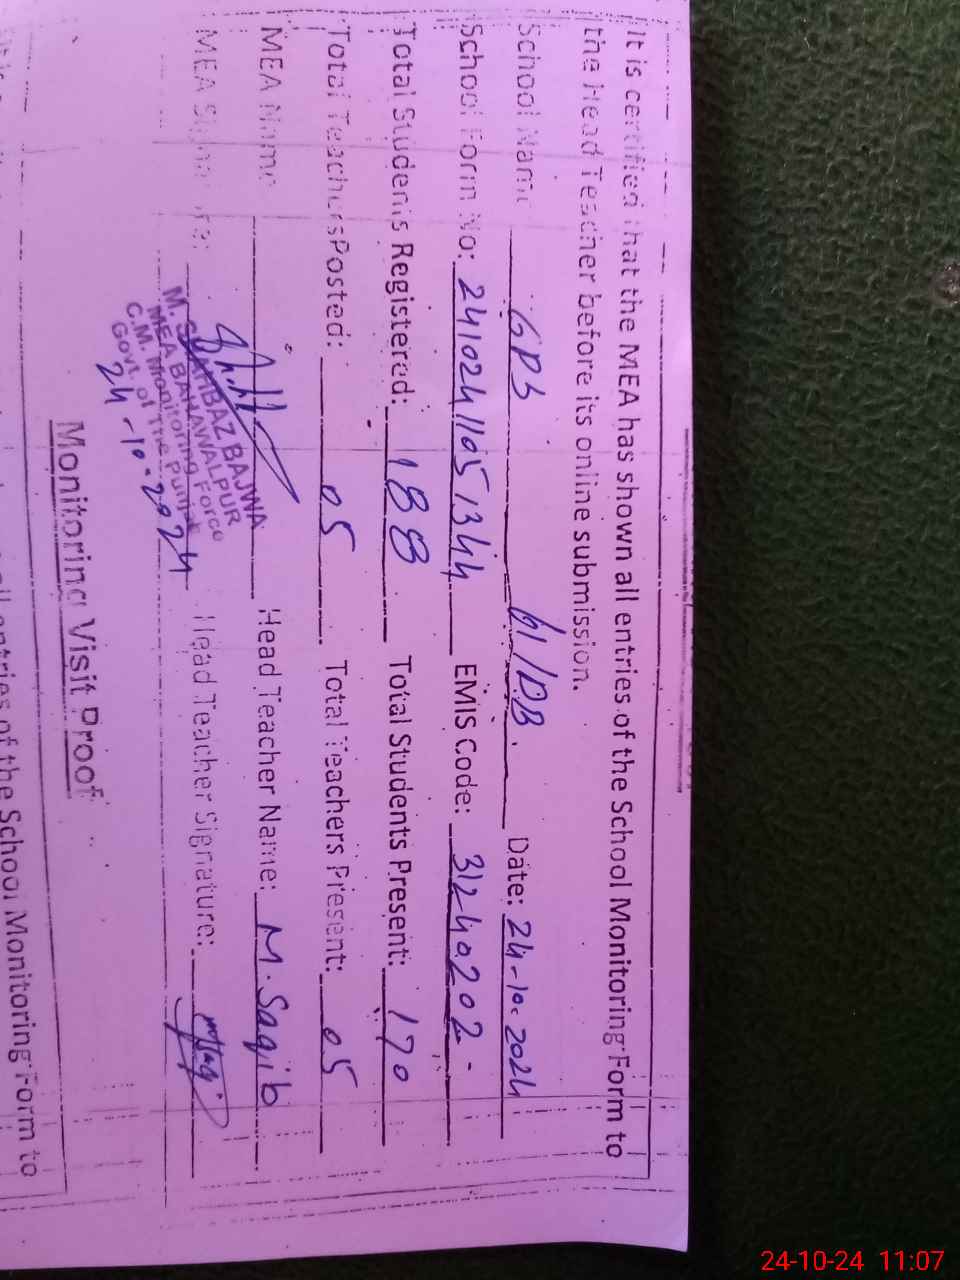 It is certified that the MEA has shown all entries of the School Monitoring Form to
the Head Teacher before its online submission.
School Name GPS 61/DB. Date: 24-10-2024
School Form No: 24102411051344 EMIS Code: 31240202-
Total Students Registered: 188 Total Students Present: 170
Total Teachers Posted: 05 Total Teachers Present: 05
MEA Name Head Teacher Name: M. Saqib
MEA Signature: Head Teacher Signature:
M. SHAHBAZ BAJWA
MEA BAHAWALPUR
C.M. Monitoring Force
Govt. of The Punjab
24-10-2024
Monitoring Visit Proof
all entries of the School Monitoring Form to
24-10-24 11:07